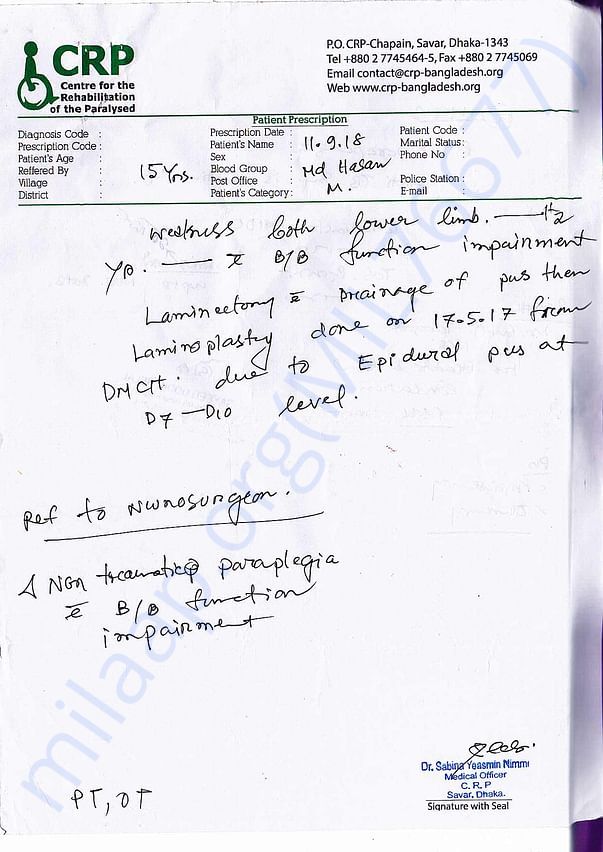 CRP
Centre for the
Rehabilitation
of the Paralysed
P.O. CRP-Chapain, Savar, Dhaka-1343
Tel +880 2 7745464-5, Fax +880 2 7745069
Email contact@crp-bangladesh.org
Web www.crp-bangladesh.org
Patient Prescription
Diagnosis Code :
Prescription Code :
Patient's Age :
Reffered By :
Village :
District :
15 Yrs.
Prescription Date :
Patient's Name :
Sex :
Blood Group :
Post Office :
Patient's Category :
11.9.18
Md Hasan
M.
Patient Code :
Marital Status :
Phone No :
Police Station :
E-mail :
weakness both lower limb. — 1½
yr. — c̄ B/B function impairment
Laminectomy c̄ Drainage of pus then
Laminoplasty done on 17.5.17 from
DMCH. due to Epidural pus at
D7 — D10 level.
Ref to Nwrosurgeon.
Δ Non traumatic paraplegia
c̄ B/B function
impairment
PT, OT
Dr. Sabina Yeasmin Nimmi
Medical Officer
C. R. P
Savar, Dhaka.
Signature with Seal
milaap.org(MIL76677)